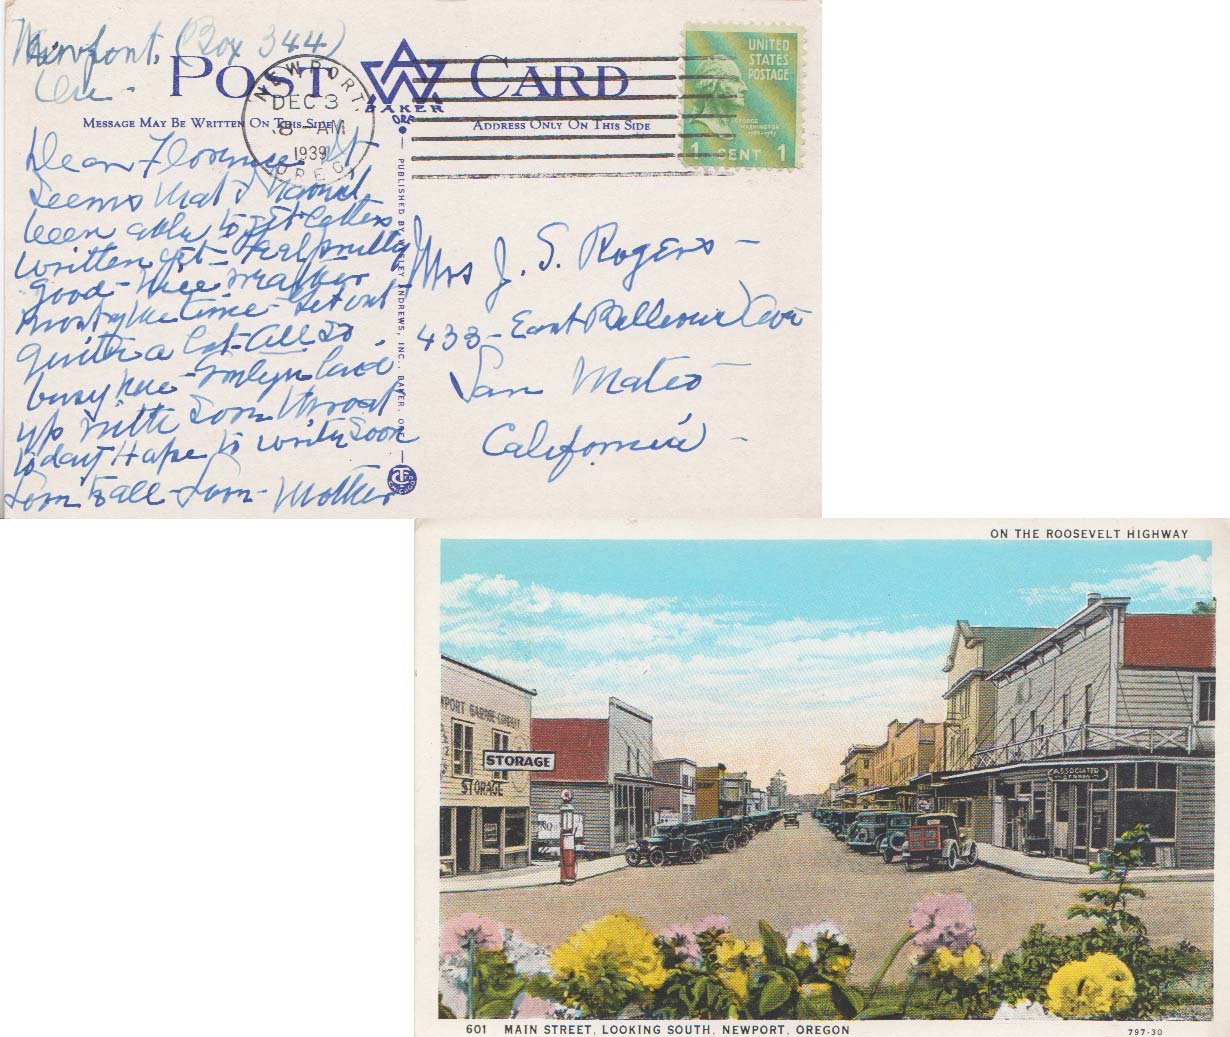 Newport, (Box 344)
Ore -
POST CARD
BAKER
ORE
MESSAGE MAY BE WRITTEN ON THIS SIDE
ADDRESS ONLY ON THIS SIDE
NEWPORT,
DEC 3
8 - AM
1939
OREG.
UNITED
STATES
POSTAGE
GEORGE
WASHINGTON
1789-1797
1 CENT 1
Dear Florence It
seems that I haven't
been able to get letters
written yet - Feel pretty
good - Nice weather
most of the time - Get out
quite a lot - All so
busy here - Evelyn laid
up with sore throat
today Hope to write soon
Love to all - Love - Mother
PUBLISHED BY WESLEY ANDREWS, INC., BAKER, ORE.
CT CHICAGO
Mrs J. S. Rogers -
433 - East Bellevue Ave
San Mateo -
California -
ON THE ROOSEVELT HIGHWAY
PORT GARAGE COMPANY
STORAGE
STORAGE
ASSOCIATED
STORES
601 MAIN STREET, LOOKING SOUTH, NEWPORT, OREGON
797-30